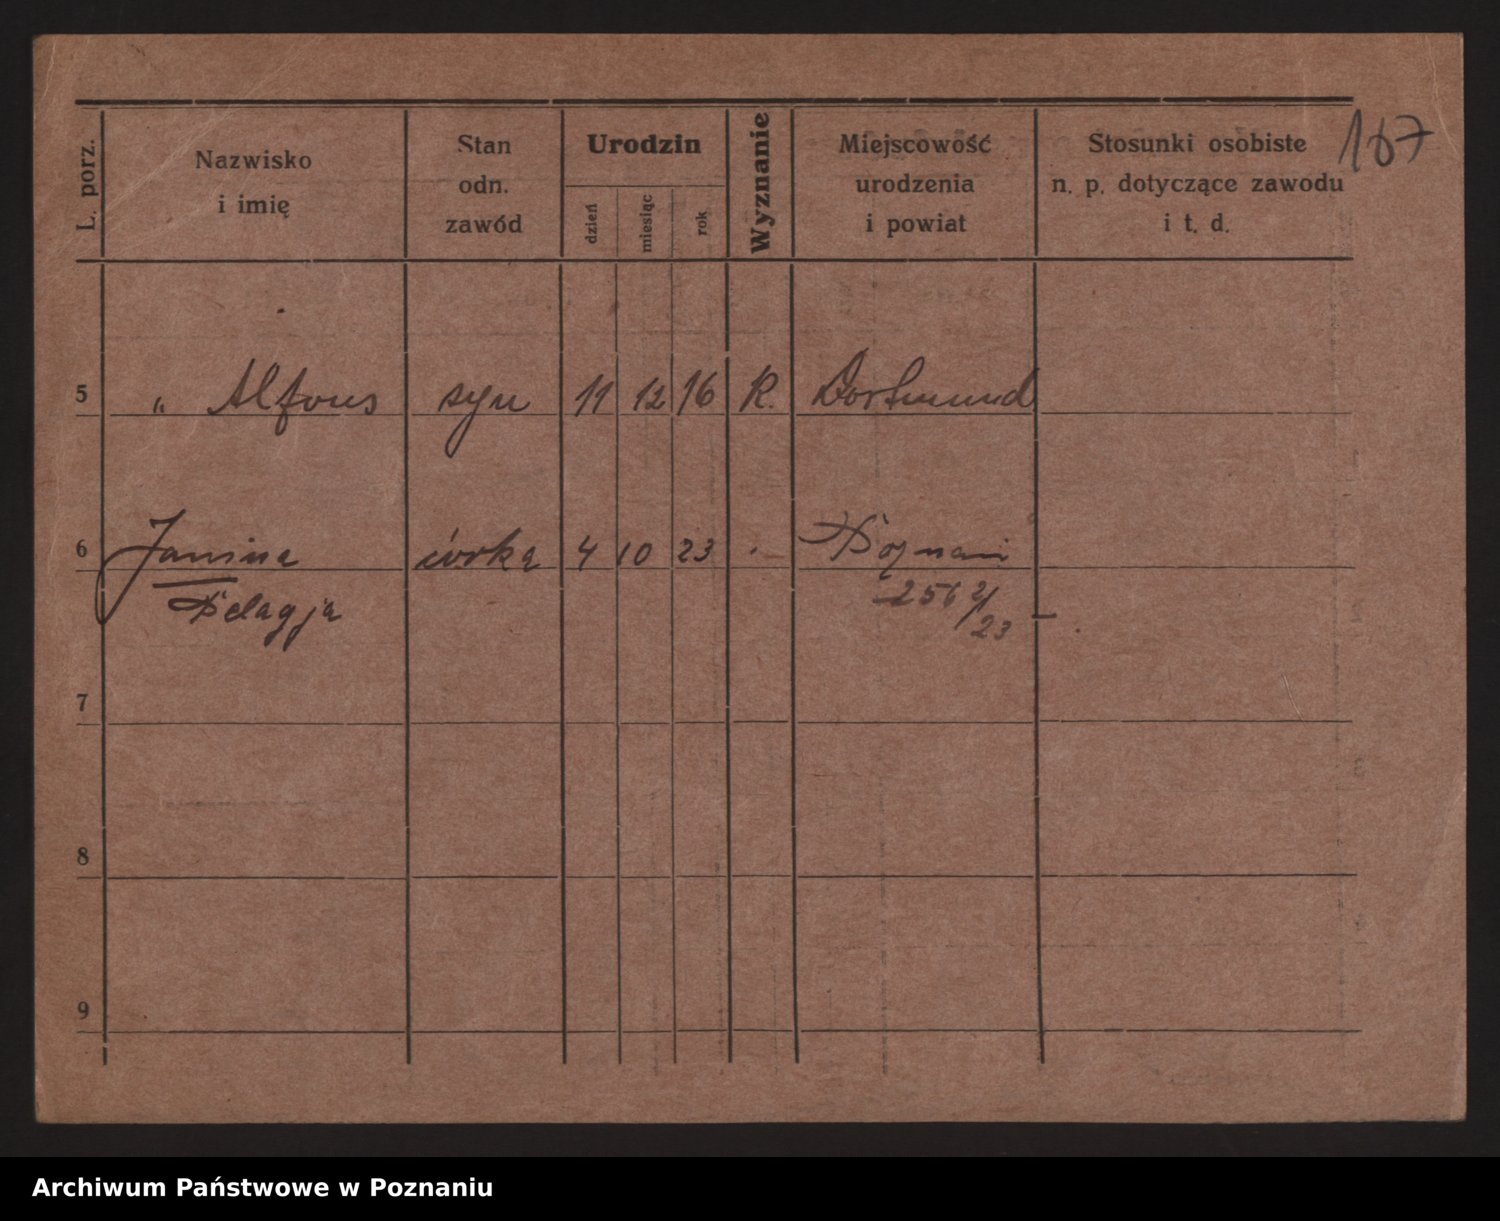 167
L. porz.
Nazwisko
i imię
Stan
odn.
zawód
Urodzin
dzień
miesiąc
rok
Wyznanie
Miejscowość
urodzenia
i powiat
Stosunki osobiste
n. p. dotyczące zawodu
i t. d.
5 " Alfons syn 11 12 16 R. Dortmund
6 Janina córka 4 10 23 " Poznań
Pelagja 256 2/23
7
8
9
Archiwum Państwowe w Poznaniu